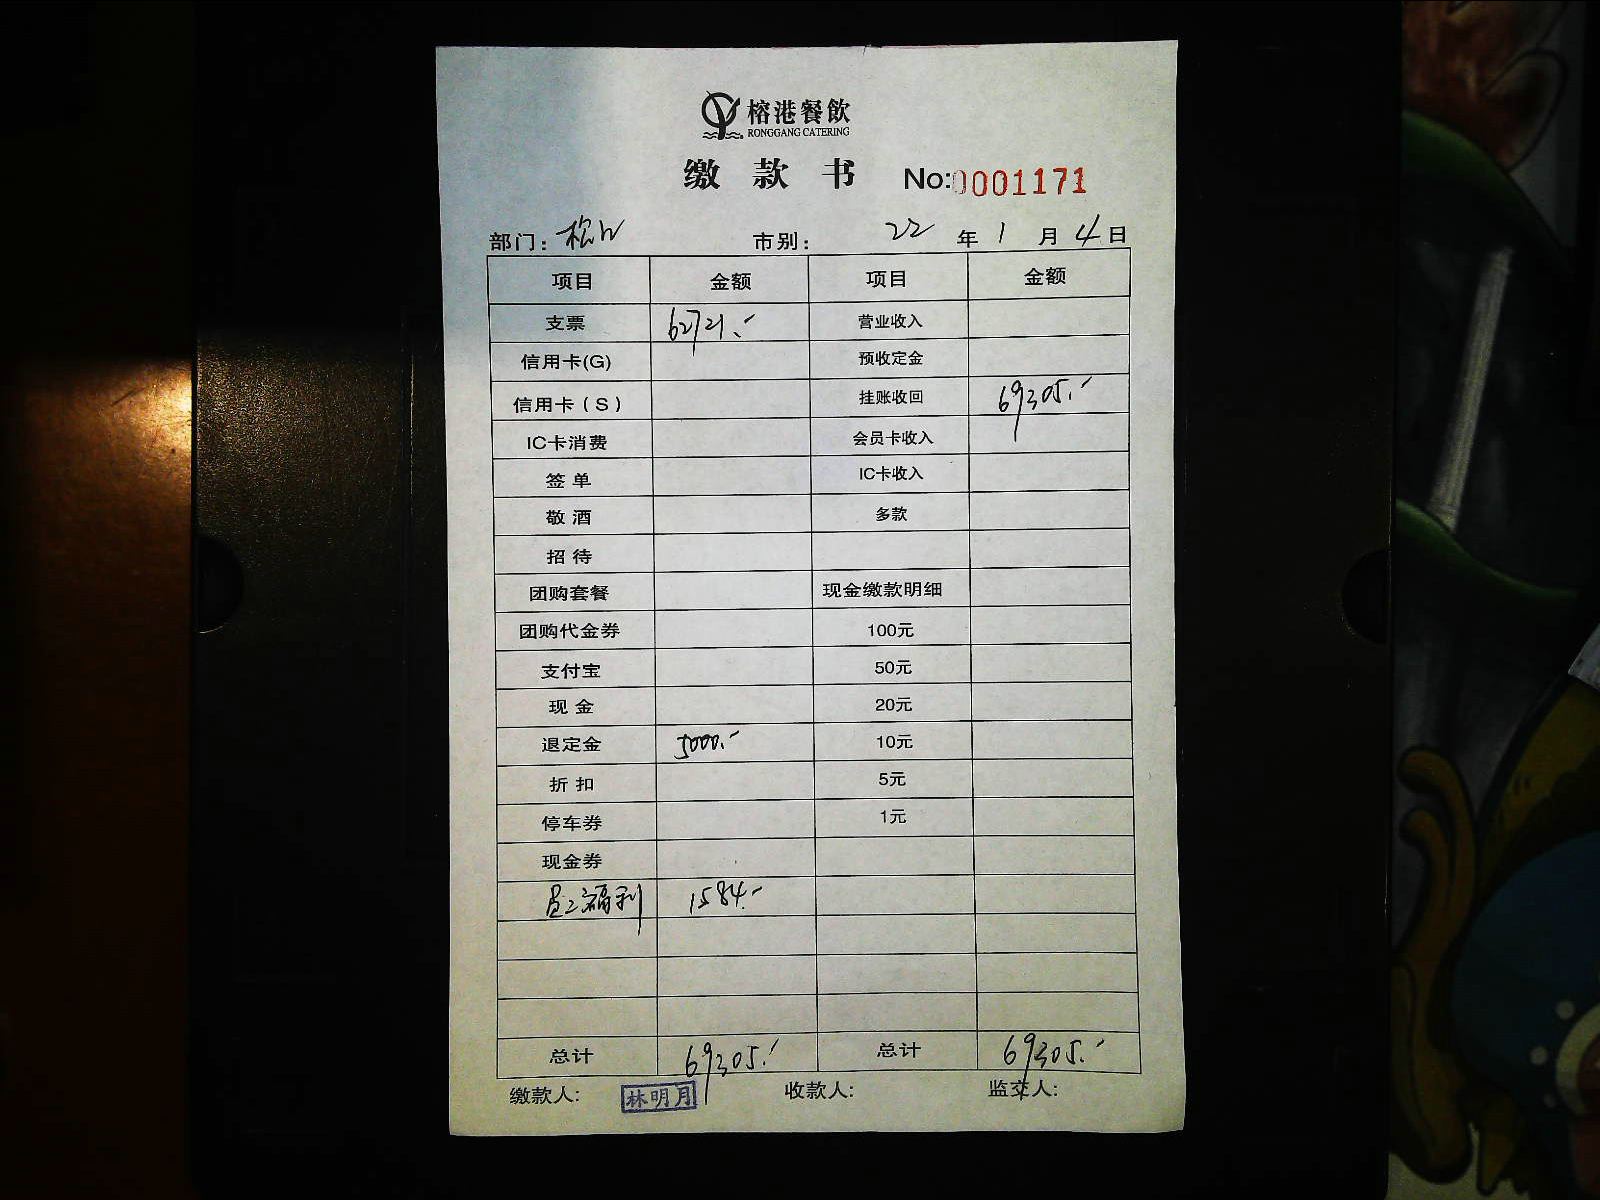 榕港餐飲
RONGGANG CATERING
缴款书 No:0001171
部门: 市别: 22年1月4日
项目 金额 项目 金额
支票 62721.- 营业收入
信用卡(G) 预收定金
信用卡(S) 挂账收回 69305.-
IC卡消费 会员卡收入
签单 IC卡收入
敬酒 多款
招待
团购套餐 现金缴款明细
团购代金券 100元
支付宝 50元
现金 20元
退定金 5000.- 10元
折扣 5元
停车券 1元
现金券
员工福利 1584.-
总计 69305.- 总计 69305.-
缴款人: 林明月 收款人: 监交人: